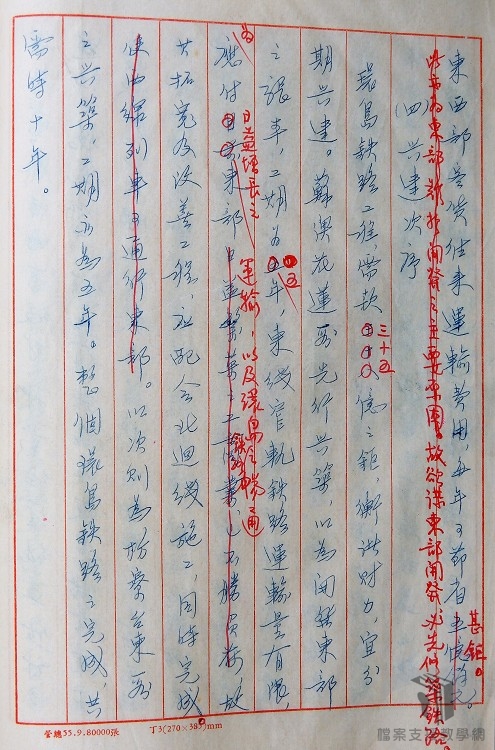 東西部客貨往來運輸費用,每年可節省甚鉅。
此亦為東部難於開發之主要原因。故欲謀東部開發,必先修築鐵路。
(四)興建次序
環島鐵路工程,需款三十五億之鉅,衡諸財力,宜分
期興建。蘇澳花蓮可先行興築,以為開發東部
之張本,工期為五年,東線窄軌鐵路運輸量有限,
為應付日益增長之東部運輸,以及環島鐵路暢通,故
其拓寬及改善工程,應配合北迴線施工,同時完成
使西線列車可通行東部。以次則為枋寮台東
之興築,工期亦為五年。整個環島鐵路之完成,共
需時十年。
管總55.9.80000張
丁3(270×385)mm
檔案支援教學網